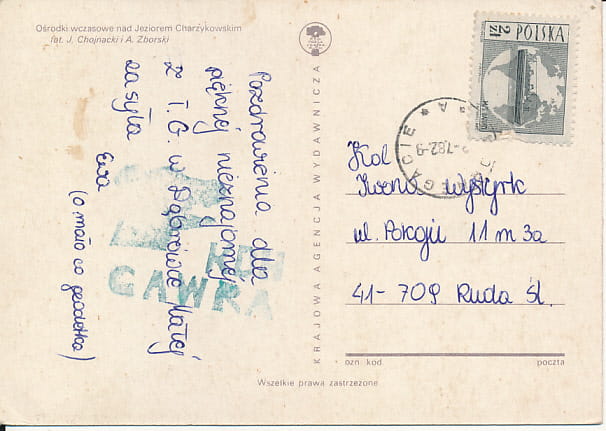 Ośrodki wczasowe nad Jeziorem Charzykowskim
fot. J. Chojnacki i A. Zborski
Pozdrowienia dla
pięknej nieznajomej
z T.G. w Dąbrówce Małej
zasyła
Ewa
(o mało co geodetka)
GAWRA
KRAJOWA AGENCJA WYDAWNICZA
2 ZŁ
POLSKA
82-9
Kol
Iwona Wystyrk
ul. Pokoju 11 m 3a
41-709 Ruda Śl.
ozn kod
poczta
Wszelkie prawa zastrzeżone